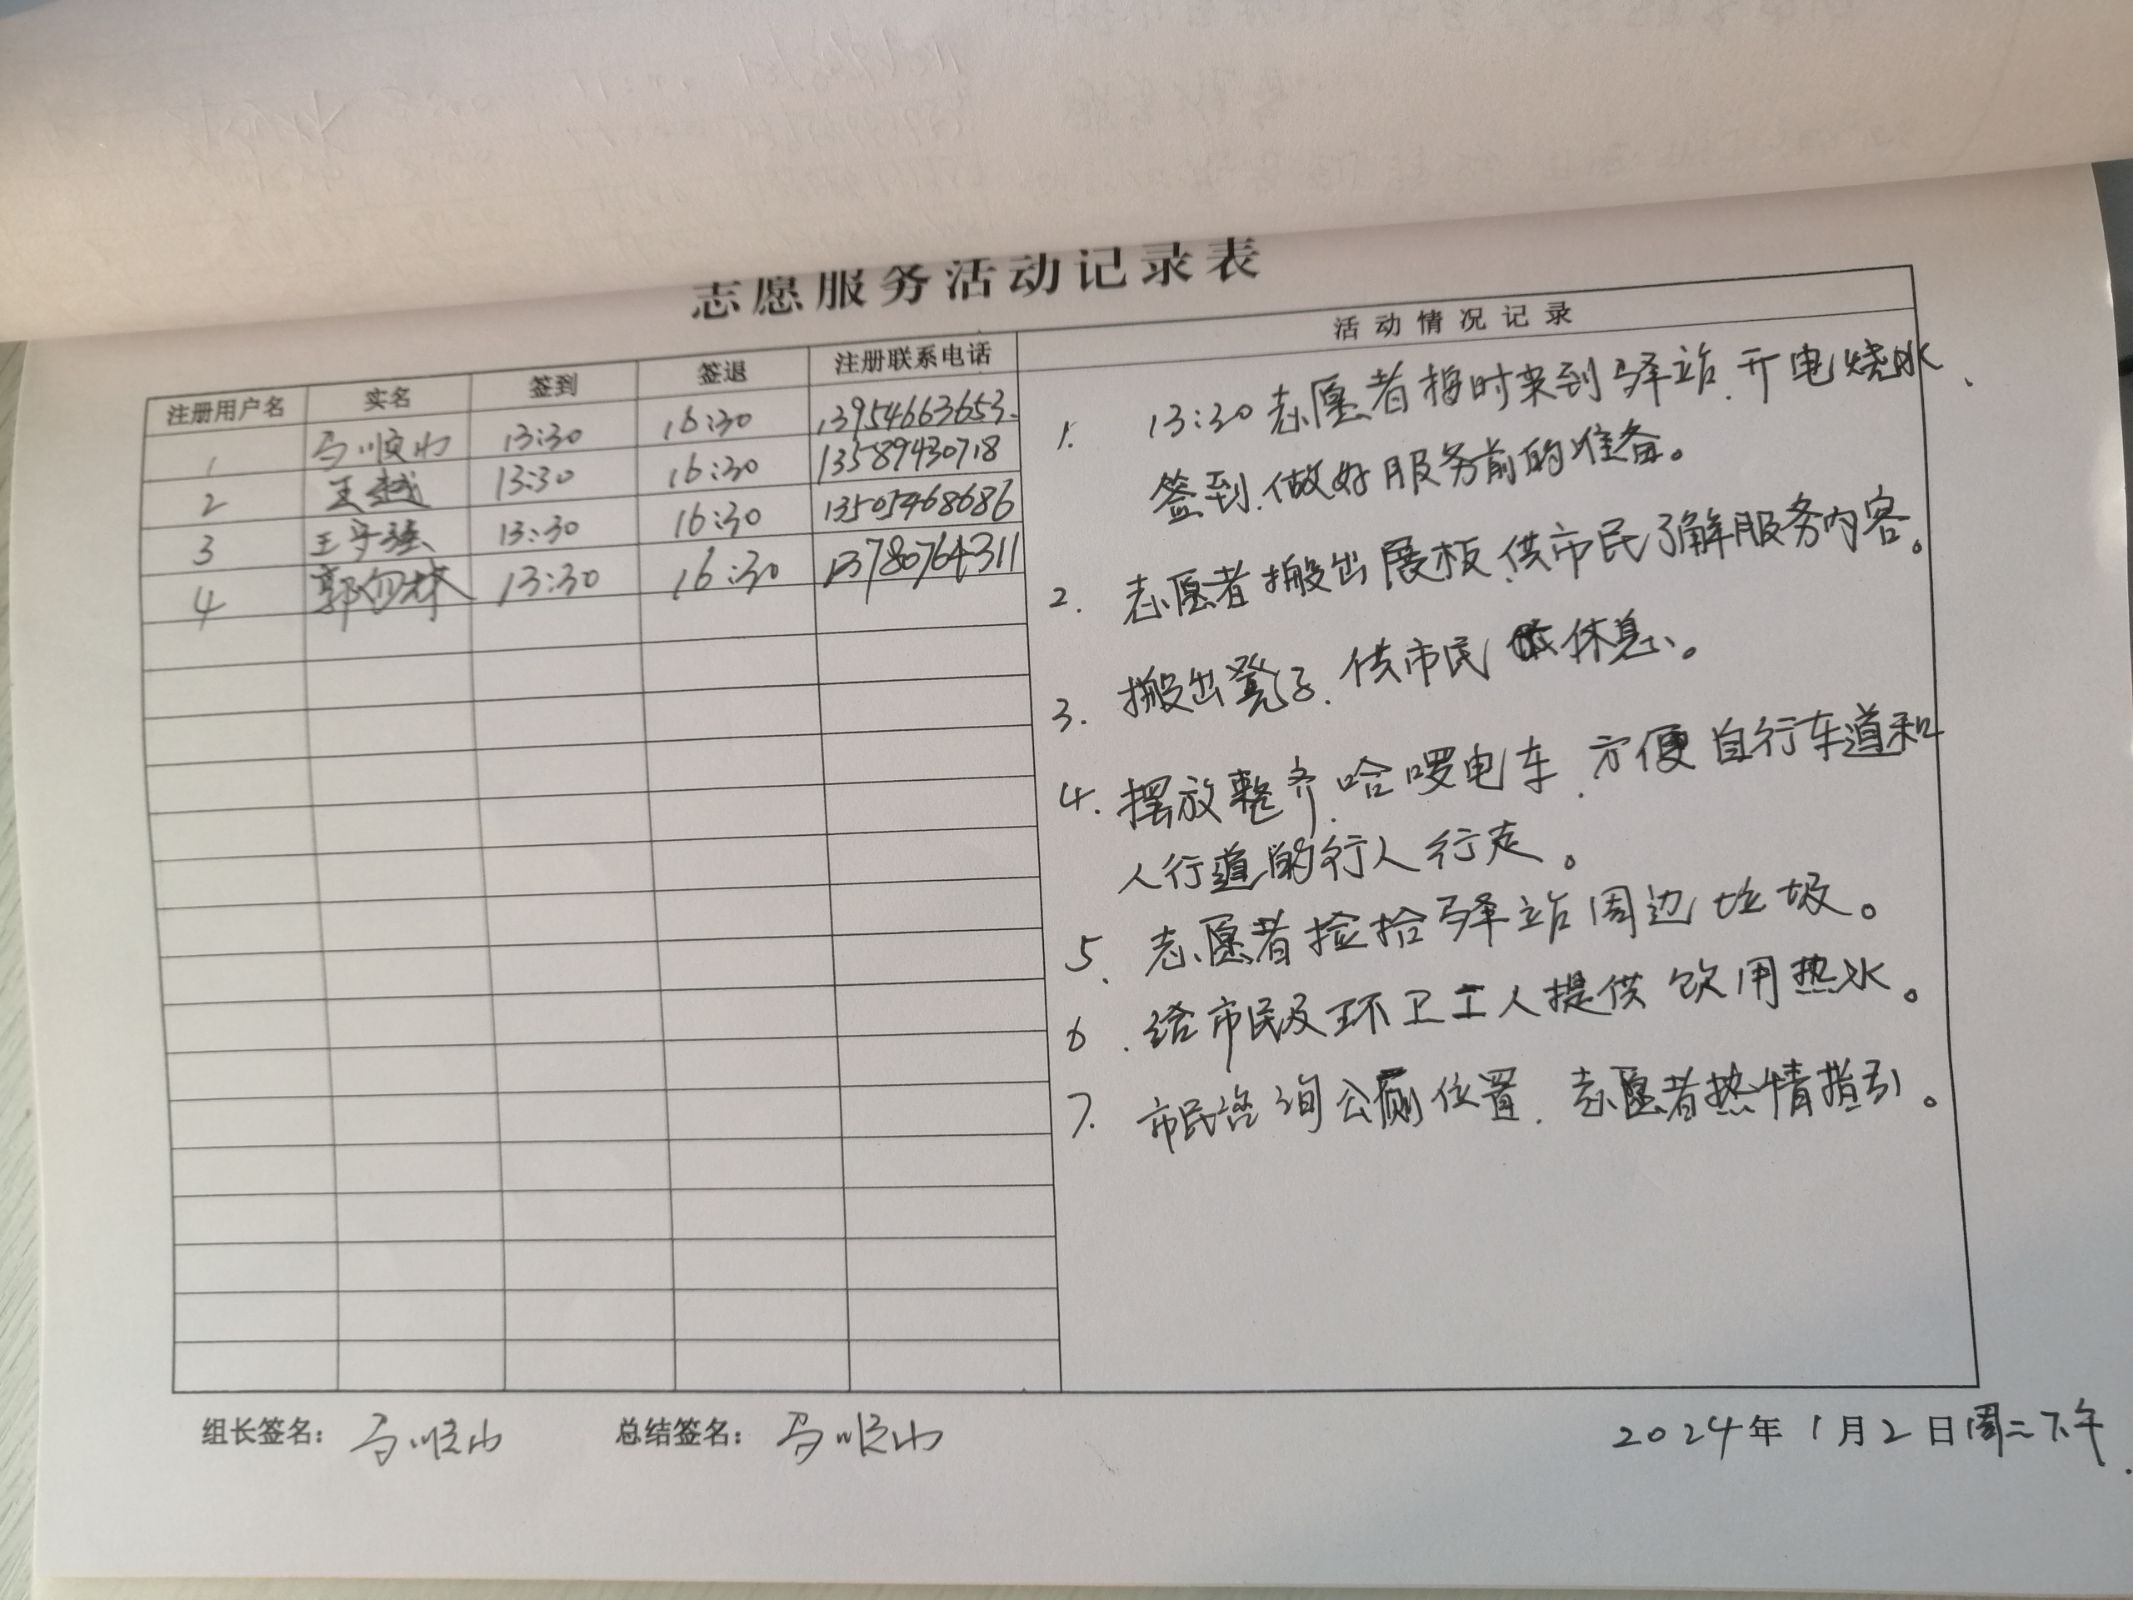 志愿服务活动记录表
注册用户名 实名 签到 签退 注册联系电话 活动情况记录
1 马顺山 13:30 16:30 13954663653
2 王越 13:30 16:30 13589430718
3 王守强 13:30 16:30 13505468686
4 郭 林 13:30 16:30 13780764311
1. 13:30志愿者按时来到驿站.开电烧水、
签到.做好服务前的准备。
2. 志愿者搬出展板.供市民了解服务内容。
3. 搬出凳子.供市民休息。
4. 摆放整齐哈啰电车.方便自行车道和
人行道的行人行走。
5、志愿者捡拾驿站周边垃圾。
6.给市民及环卫工人提供饮用热水。
7. 市民咨询公厕位置.志愿者热情指引。
组长签名: 马顺山 总结签名: 马顺山 2024年1月2日周二下午.